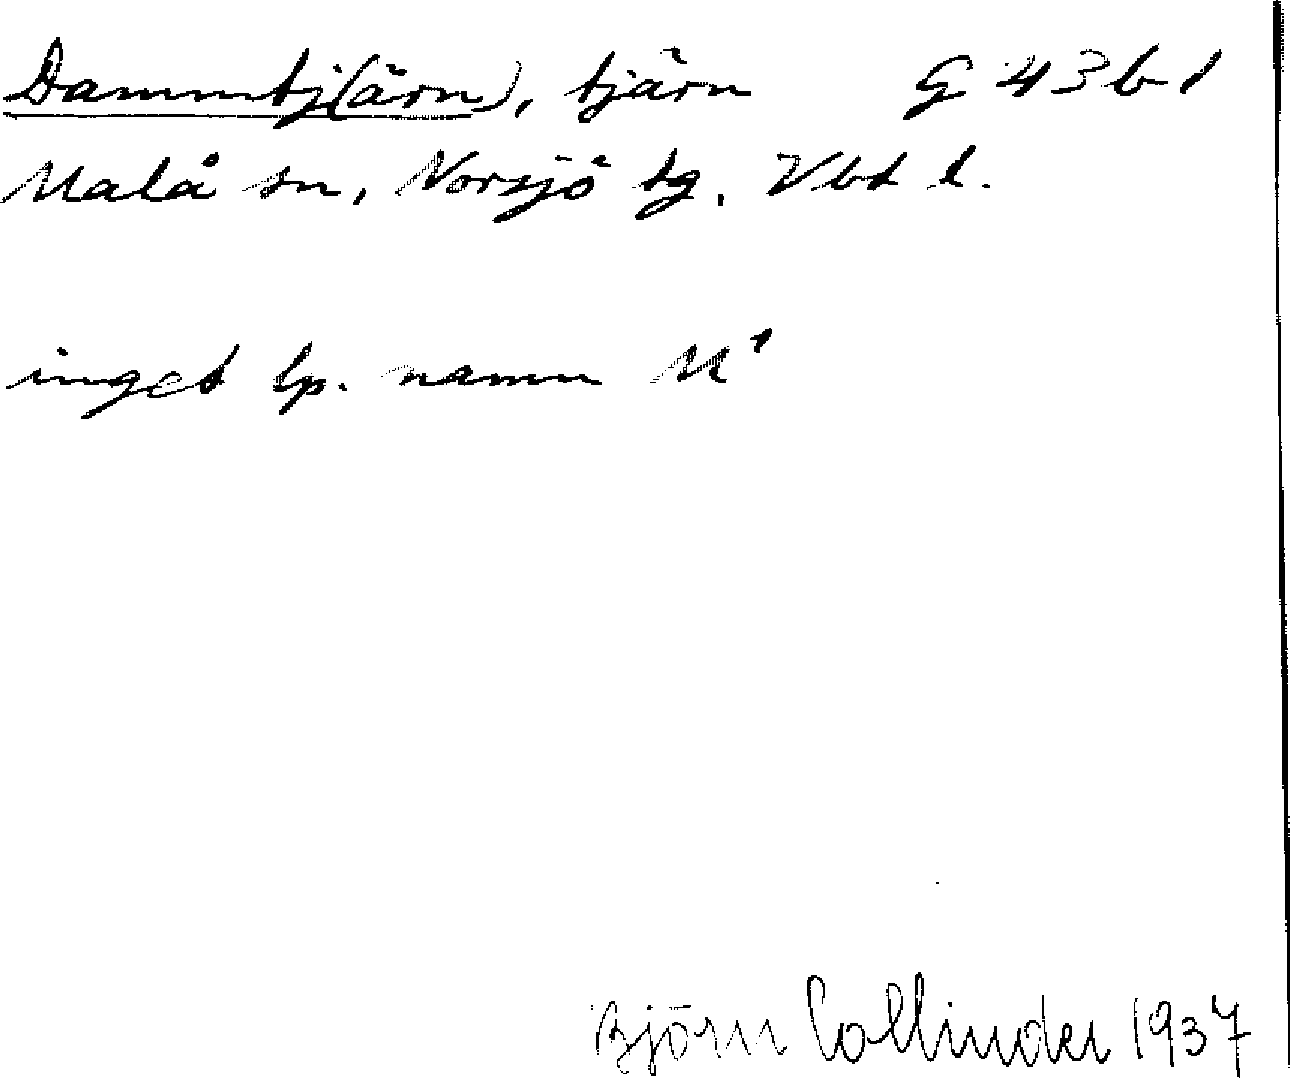 Dammtj(ärn), tjärn G 43 b 1
Malå sn, Norsjö tg, Vbt l.
inget lp. namn M¹
Björn Collinder 1937